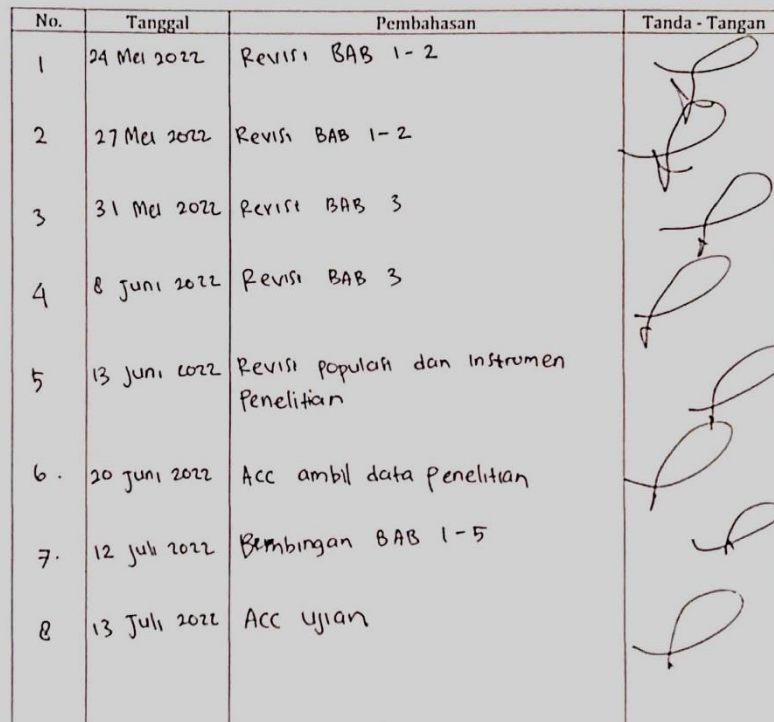 No. Tanggal Pembahasan Tanda - Tangan
1 24 Mei 2022 Revisi BAB 1-2
2 27 Mei 2022 Revisi BAB 1-2
3 31 Mei 2022 Revisi BAB 3
4 8 Juni 2022 Revisi BAB 3
5 13 Juni 2022 Revisi populasi dan Instrumen
Penelitian
6. 20 Juni 2022 Acc ambil data penelitian
7. 12 Juli 2022 Bembingan BAB 1-5
8 13 Juli 2022 Acc Ujian